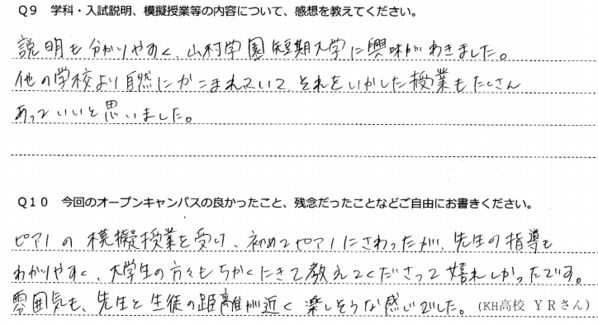 Q9 学科・入試説明、模擬授業等の内容について、感想を教えてください。
説明も分かりやすく、山村学園短期大学に興味がわきました。
他の学校より自然にかこまれていて、それをいかした授業もたくさん
あっていいと思いました。
Q10 今回のオープンキャンパスの良かったこと、残念だったことなどご自由にお書きください。
ピアノの模擬授業を受け、初めてピアノにさわったが、先生の指導も
わかりやすく、大学生の方々もちかくにきて教えてくださって嬉しかったです。
雰囲気も、先生と生徒の距離が近く楽しそうな感じでした。(KH高校 YRさん)